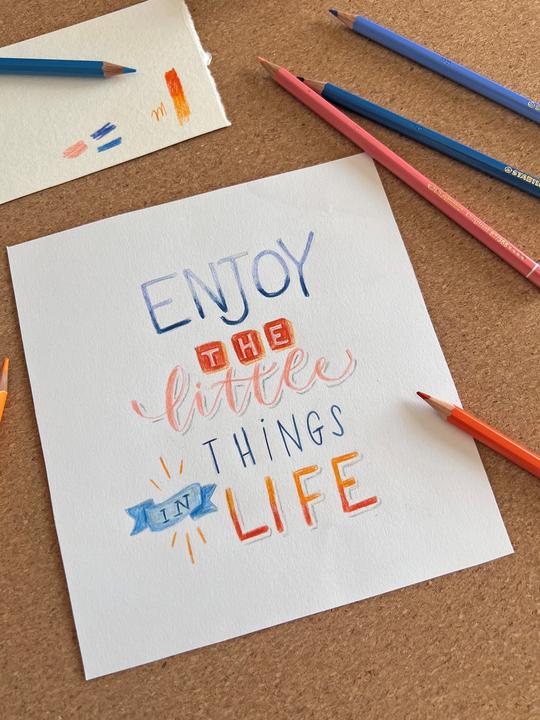 ENJOY
THE
little
THiNGS
IN LIFE
STABILO